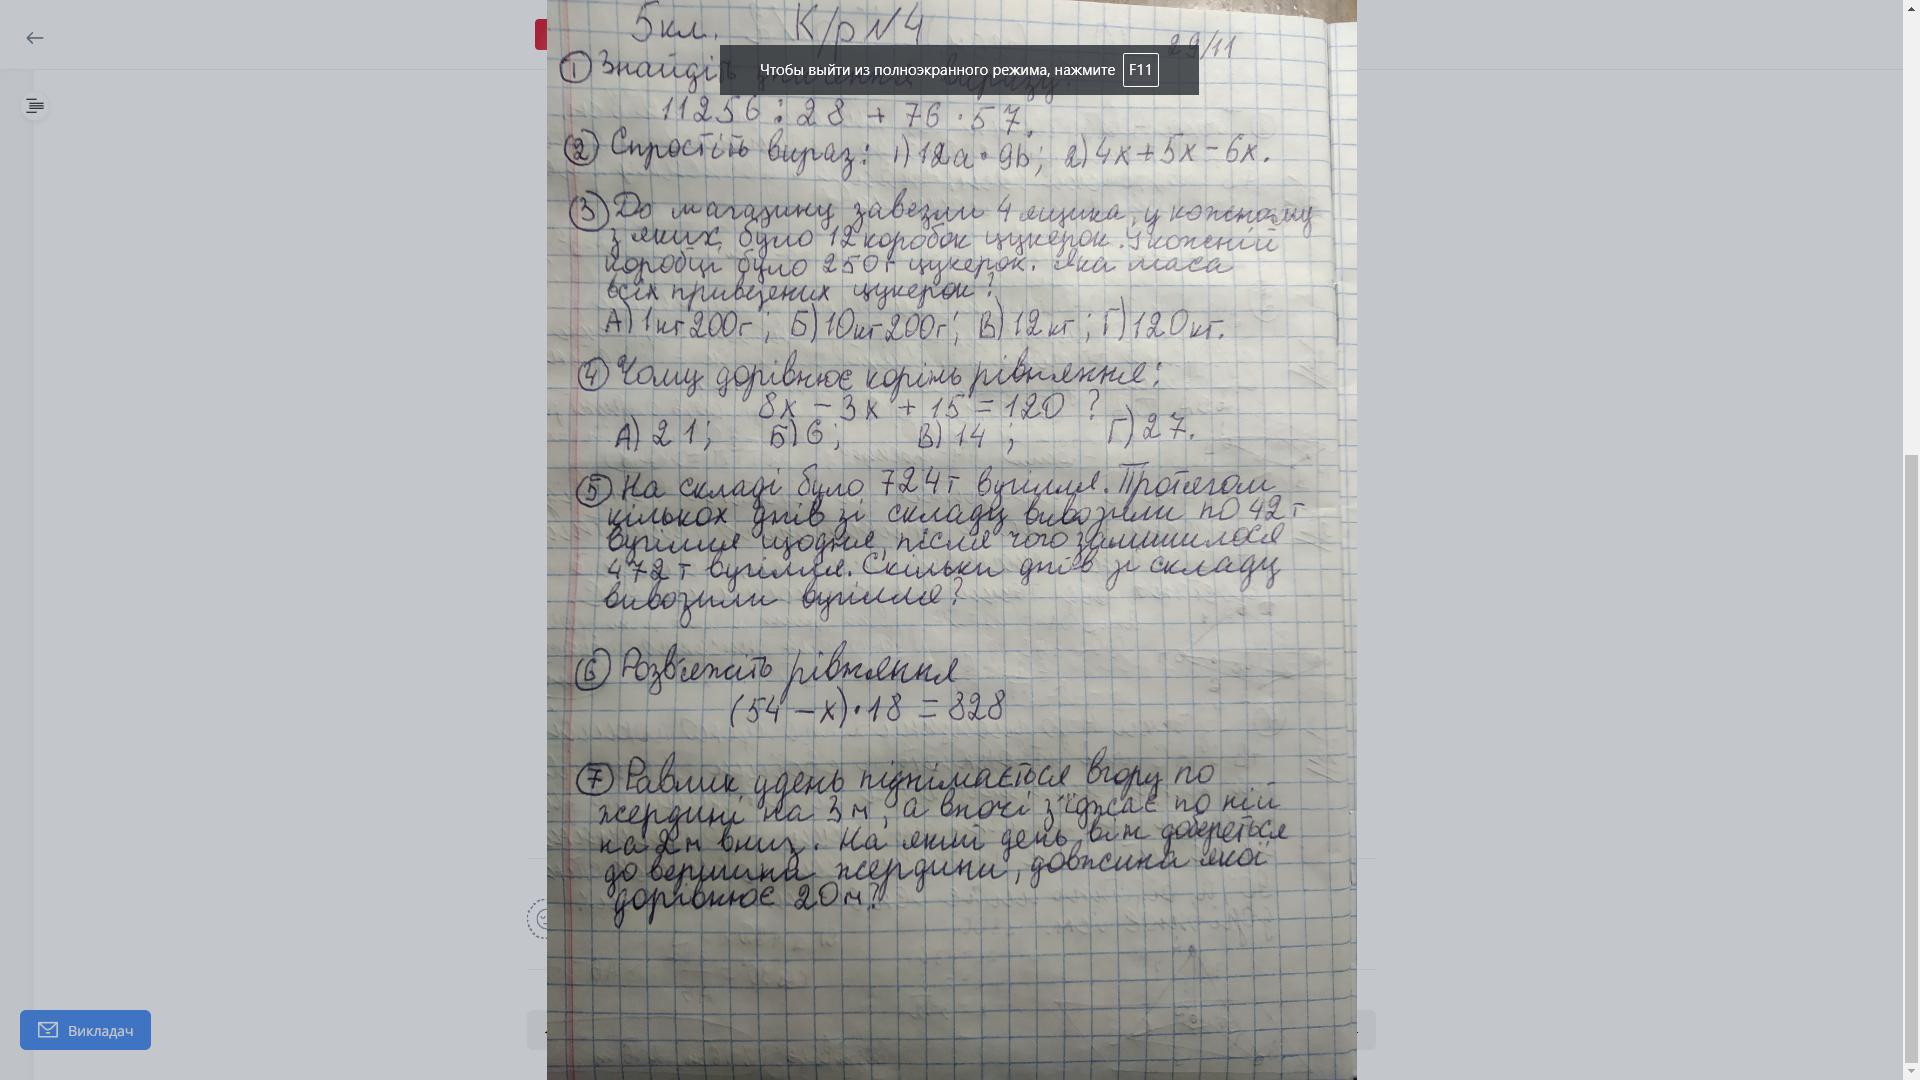 5кл. К/р №4
29/11
Чтобы выйти из полноэкранного режима, нажмите F11
① Знайдіть значення виразу:
11256 : 28 + 76 · 57.
② Спростіть вираз: 1) 12a · 9b; 2) 4x + 5x - 6x.
③ До магазину завезли 4 ящика, у кожному
з яких було 12 коробок цукерок. У кожній
коробці було 250г цукерок. Яка маса
всіх привезених цукерок?
А) 1кг 200г; Б) 10кг 200г; В) 12кг; Г) 120кг.
④ Чому дорівнює корінь рівняння:
8x - 3x + 15 = 120 ?
А) 21; Б) 6; В) 14; Г) 27.
⑤ На складі було 724т вугілля. Протягом
кількох днів зі складу вивозили по 42т
вугілля щодня, після чого залишилося
472т вугілля. Скільки днів зі складу
вивозили вугілля?
⑥ Розв'яжіть рівняння
(54 - x) · 18 = 828
⑦ Равлик удень піднімається вгору по
жердині на 3м, а вночі з'їджає по ній
на 2м вниз. На який день він добереться
до вершини жердини, довжина якої
дорівнює 20м?
Викладач